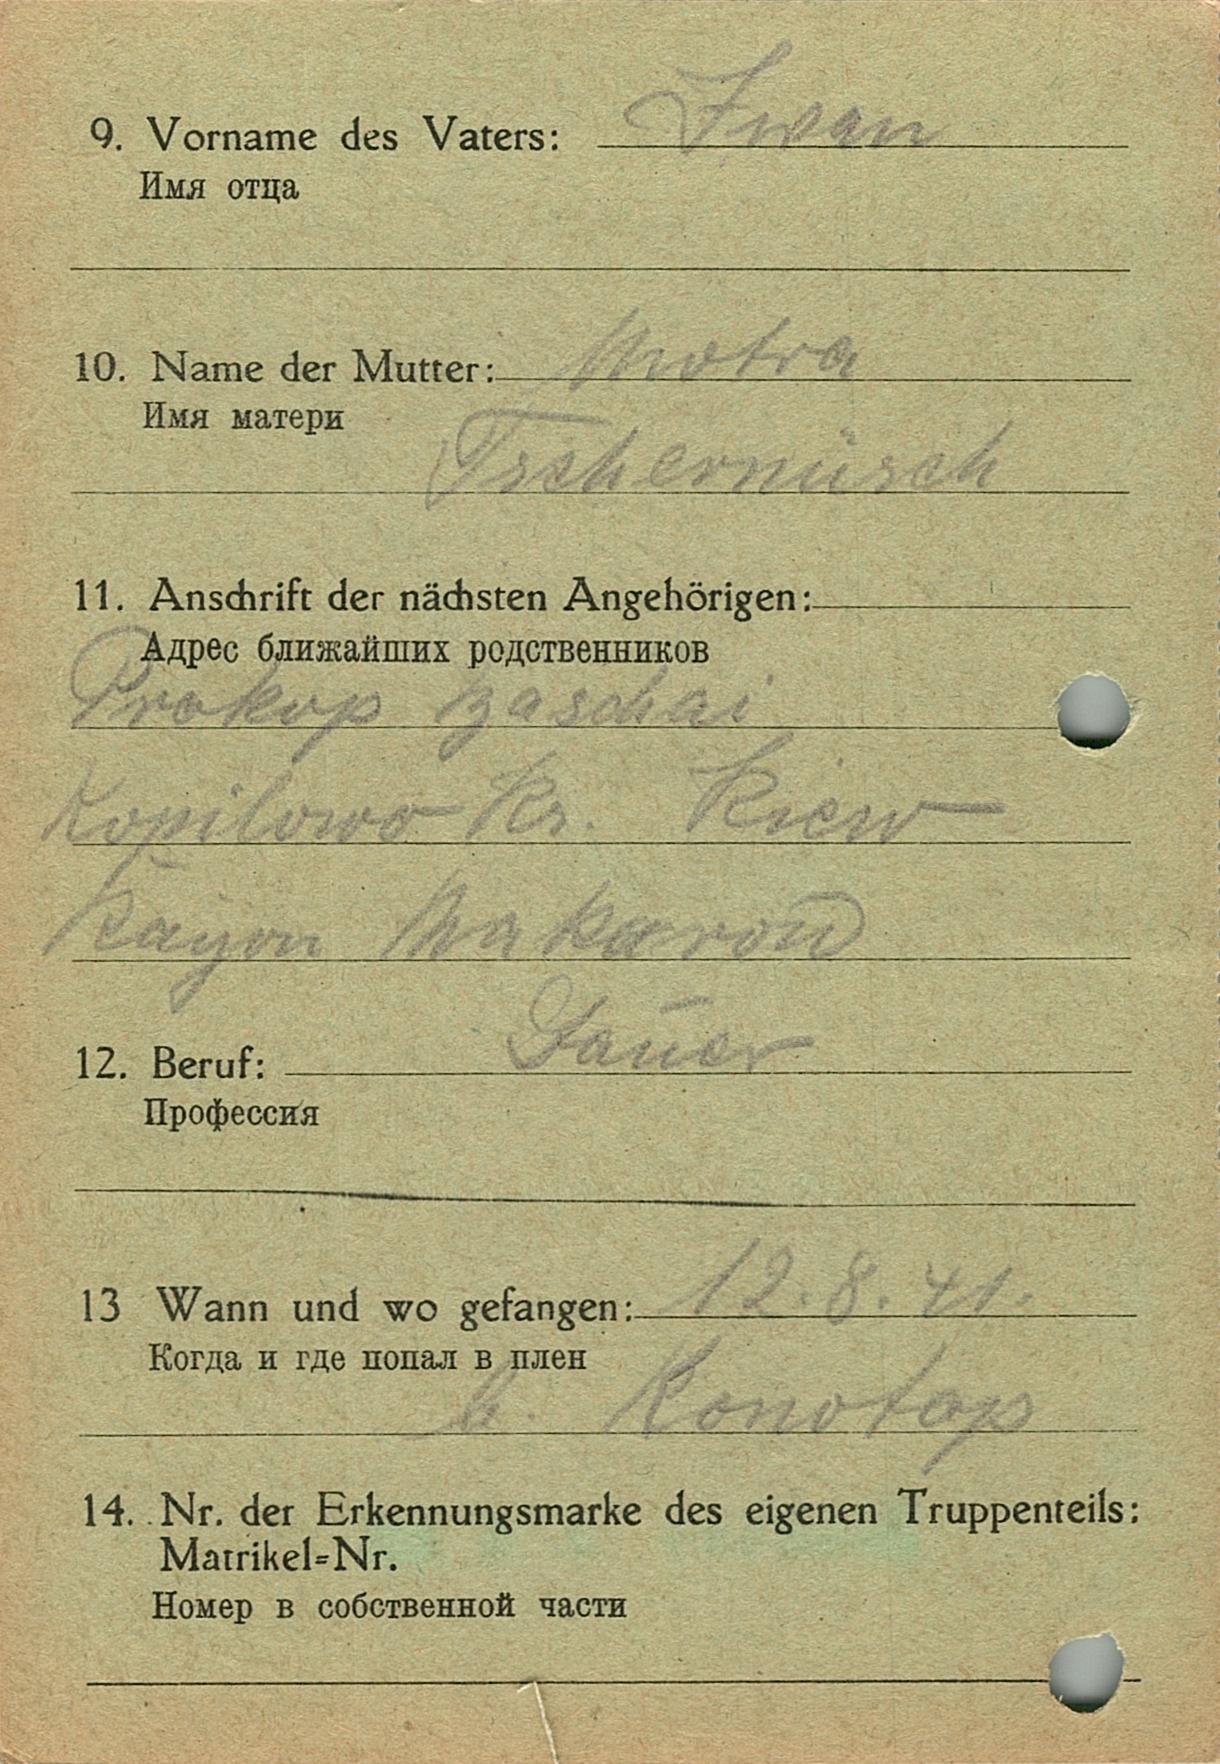 9. Vorname des Vaters: Iwan
Имя отца
10. Name der Mutter: Motra
Имя матери
Tschernüsch
11. Anschrift der nächsten Angehörigen:
Адрес ближайших родственников
Prokop Baschai
Kopilowo Kr. Kiew
Rayon Makarow
12. Beruf: Bauer
Профессия
13 Wann und wo gefangen: 12.8.41.
Когда и где попал в плен
b. Konotop
14. Nr. der Erkennungsmarke des eigenen Truppenteils:
Matrikel=Nr.
Номер в собственной части